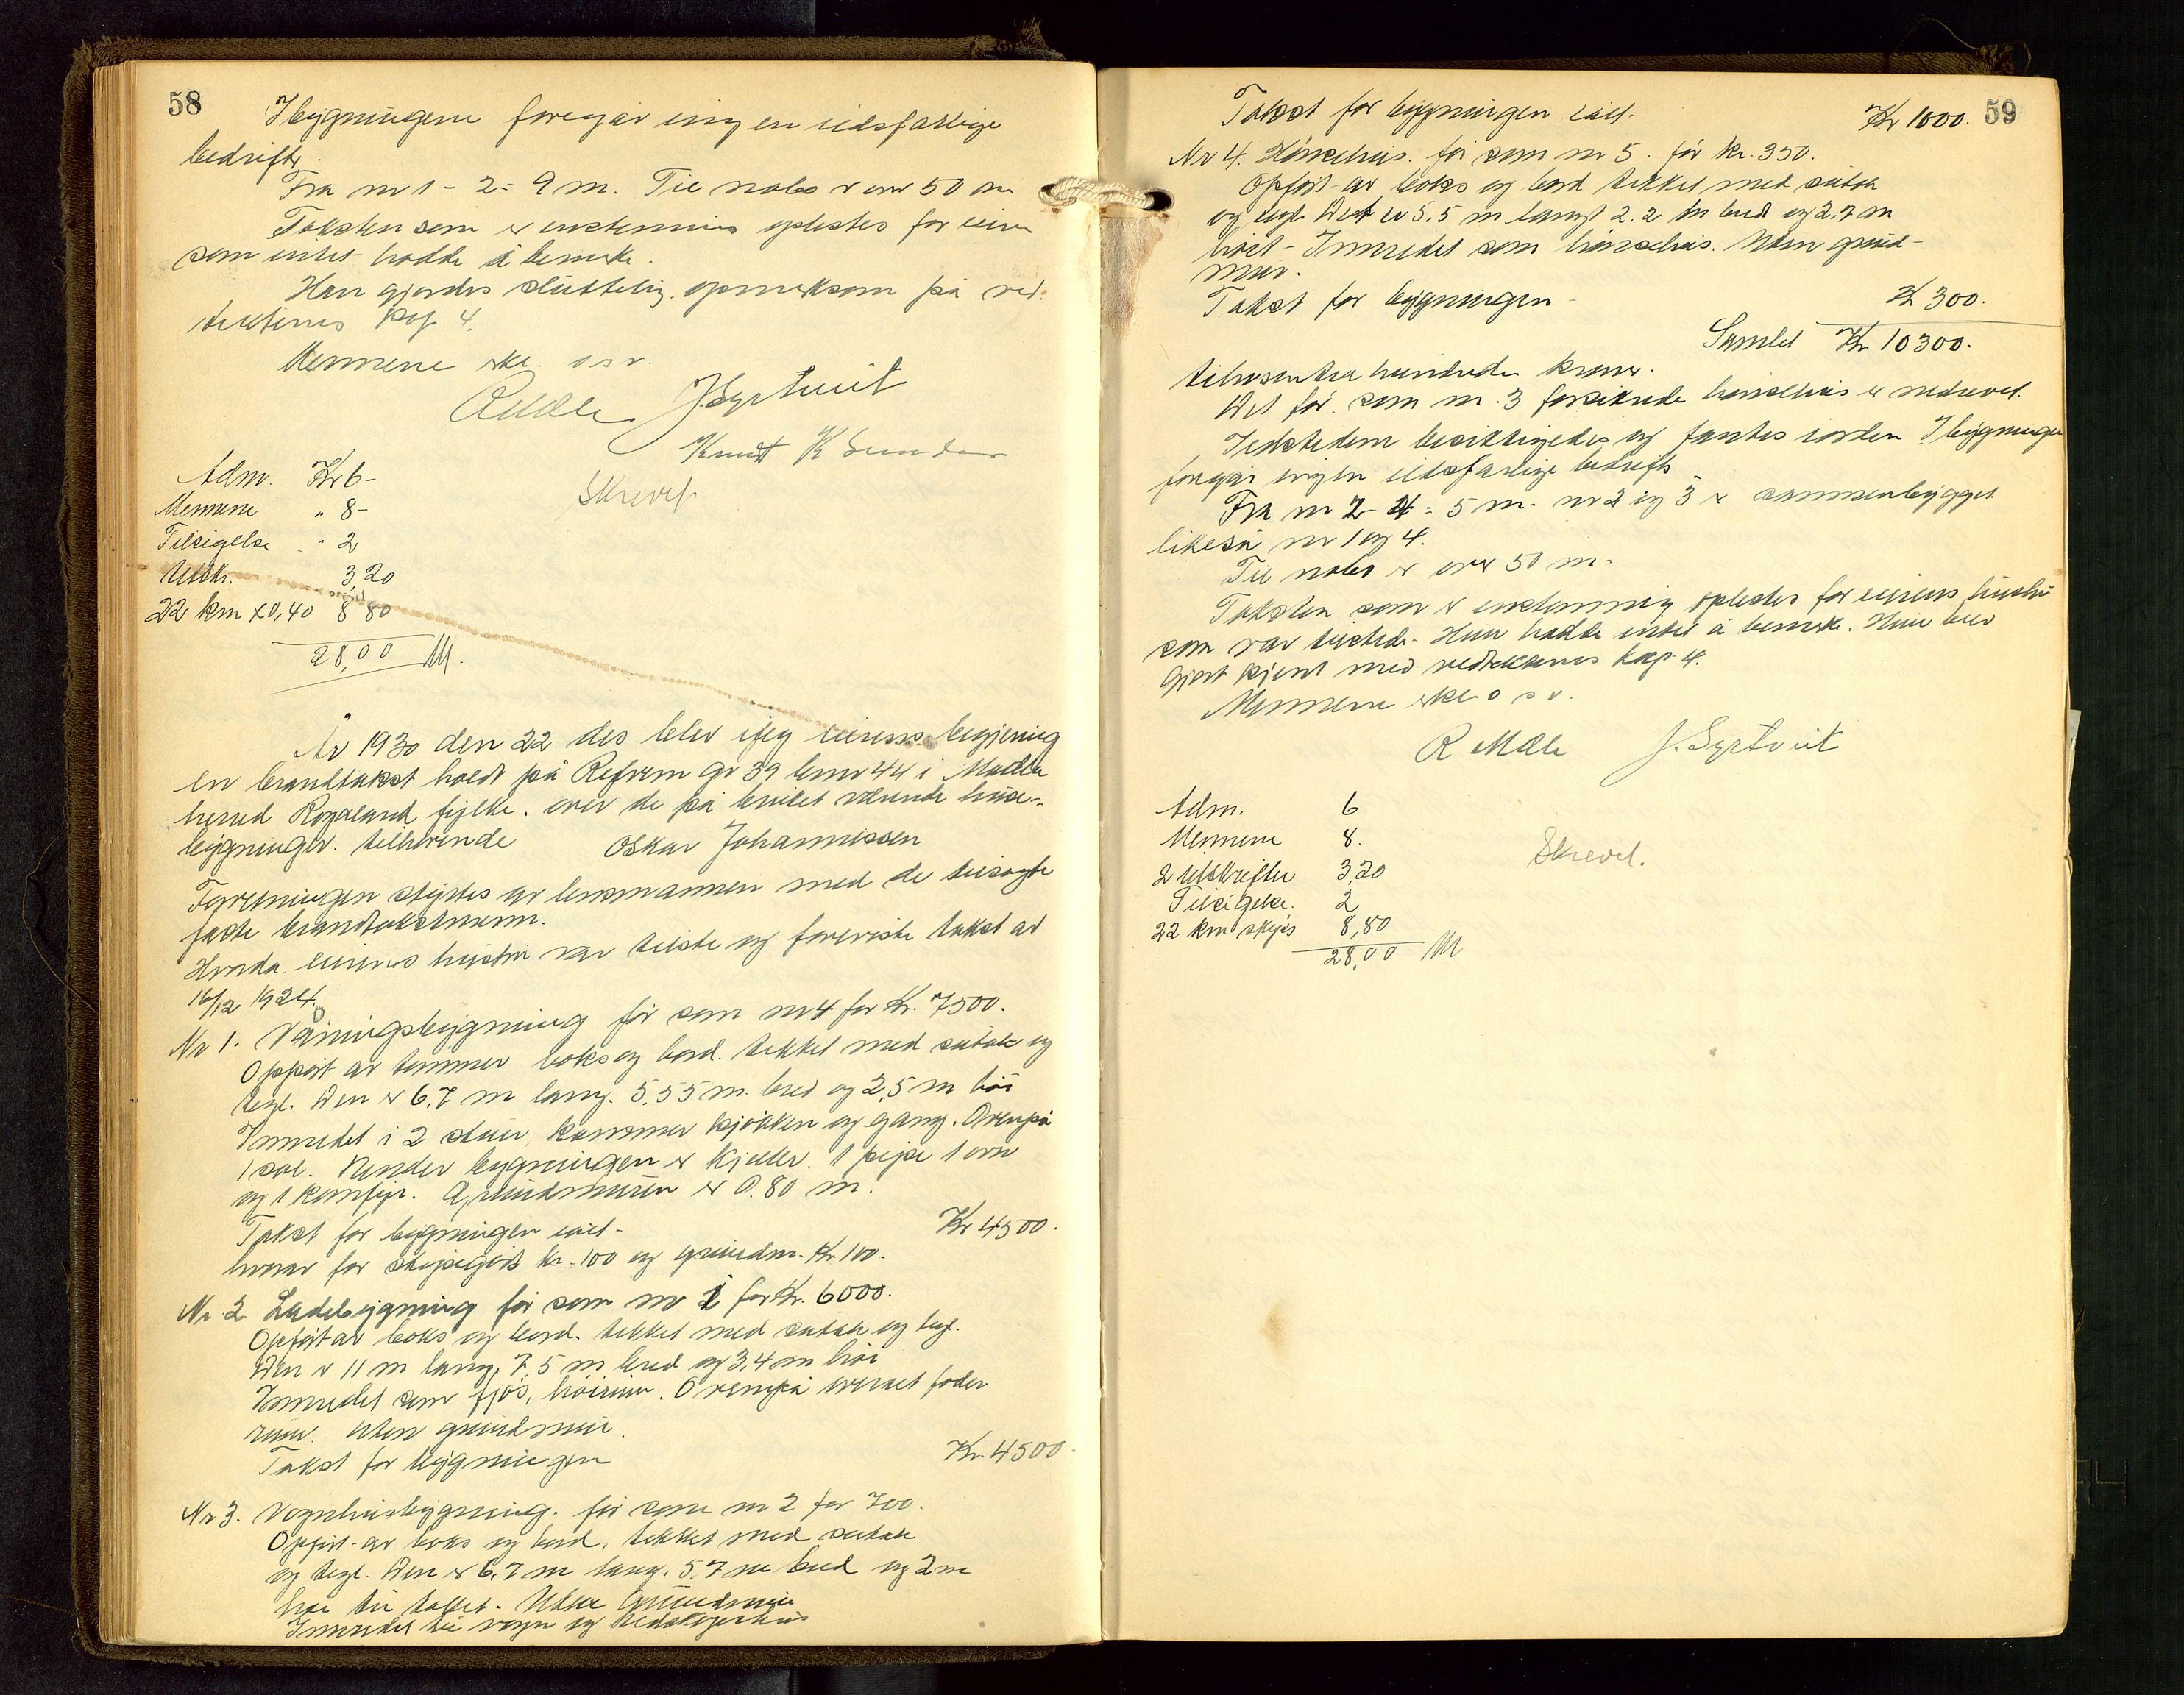 58
I bygningene foregår ingen ildsfarlige
bedrifter.
Fra nr 1 - 2 = 9 m. Til nabo er over 50 m
Taksten som er enstemmig oplestes for eieren
som intet hadde å bemerke.
Han gjordes sluttelig opmerksom på ved-
tektenes kap 4.
Mennene skr. o s v.
R Mæle J. Syrtveit
Knut K Sunde
Adm. Kr 6 -
Mennene " 8 -
Tilsigelse " 2
Utskr. 3,20
22 km x 0,40 8 80
28,00 M.
Skrevet
År 1930 den 22 des blev efter eierens begjæring
en brandtakst holdt på Refrem gr 39 bnr 44 i Madla
herred Rogaland fylke. over de på bruket værende hus-
bygninger. tilhørende Oskar Johannessen
Forretningen styrtes av lensmannen med de tilsagte
faste brandtakstmenn.
Hvorda eierens hustru var tilstede og foreviste takst av
16/12 1924.
Nr 1. Våningsbygning før som nr 4 for Kr. 7500.
Oppført av tømmer boks og bord. tekket med sutak og
tegl. Den er 6,7 m lang. 5,55 m. bred og 2,5 m høi
Innredet i 2 stuer, kammer kjøkken og gang. Ovenpå
1 sal. Under bygningen er kjeller. 1 pipe 1 ovn
og 1 komfyr. Grundmuren er 0.80 m.
Takst for bygningen ialt - Kr 4500.
hvorav for skipegods kr. 100 og grundm. Kr 100.
Nr 2 Ladebygning før som nr 1 for Kr. 6000.
Opført av boks og bord. tekket med sutak og tegl.
Den er 11 m lang, 7,5 m bred og 3,4 m høi
Innredet som fjøs, høirum. Ovenpå foder
rum. Uten grundmur.
Takst for bygningen Kr. 4500
Nr 3. Vognhusbygning. før som nr 2 for 700.
Opført av boks og bord, tekket med sutak
og tegl. Den er 6,7 m lang. 5.7 m bred og 2 m
høi til taket. Uten Grundmur
Innredet til vogn og redskapshus
59
Takst for bygningen ialt. Kr 1000.
Nr 4. Hønsehus. før som nr 5. før kr. 350.
Opført av boks og bord tekket med sutak
og tegl. Det er 5,5 m langt 2.2 m bred og 2,7 m
høit - Innredet som hønsehus. Uten grund-
mur.
Takst for bygningen - Kr 300.
Samlet Kr. 10300.
titusentrehundrede kroner.
Det før som nr. 3 forsikrede hønsehus er nedrevet.
Ildstedene besiktigedes og fantes iorden I bygningen
foregår ingen ildsfarlige bedrifter
Fra nr 2 - 4 = 5 m. nr 2 og 3 er sammenbygget
likeså nr 1 og 4.
Til nabo er over 50 m.
Taksten som er enstemmig oplestes for eierens hustru
som var tilstede. Hun hadde intet å bemerke. Hun blev
gjort kjent med vedtektenes kap 4.
Mennene skr o s v.
R Mæle J. Syrtveit
Adm. 6
Mennene 8.
2 Utskrifter 3,20
Tilsigelse. 2
22 km skyss 8,80
28,00 M
Skrevet.